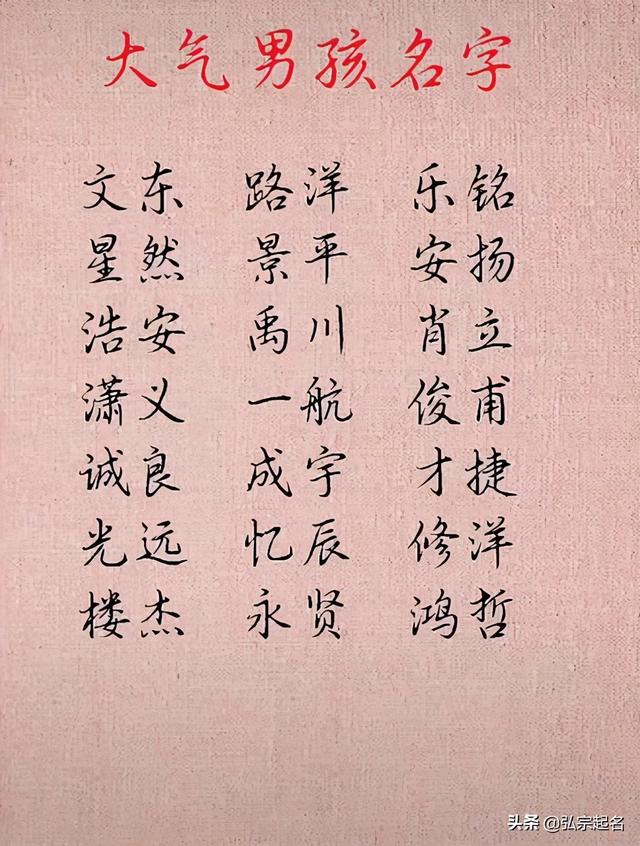 大气男孩名字
文东 路洋 乐铭
星然 景平 安扬
浩安 禹川 肖立
潇义 一航 俊甫
诚良 成宇 才捷
光远 忆辰 修洋
楼杰 永贤 鸿哲
头条 @弘宗起名